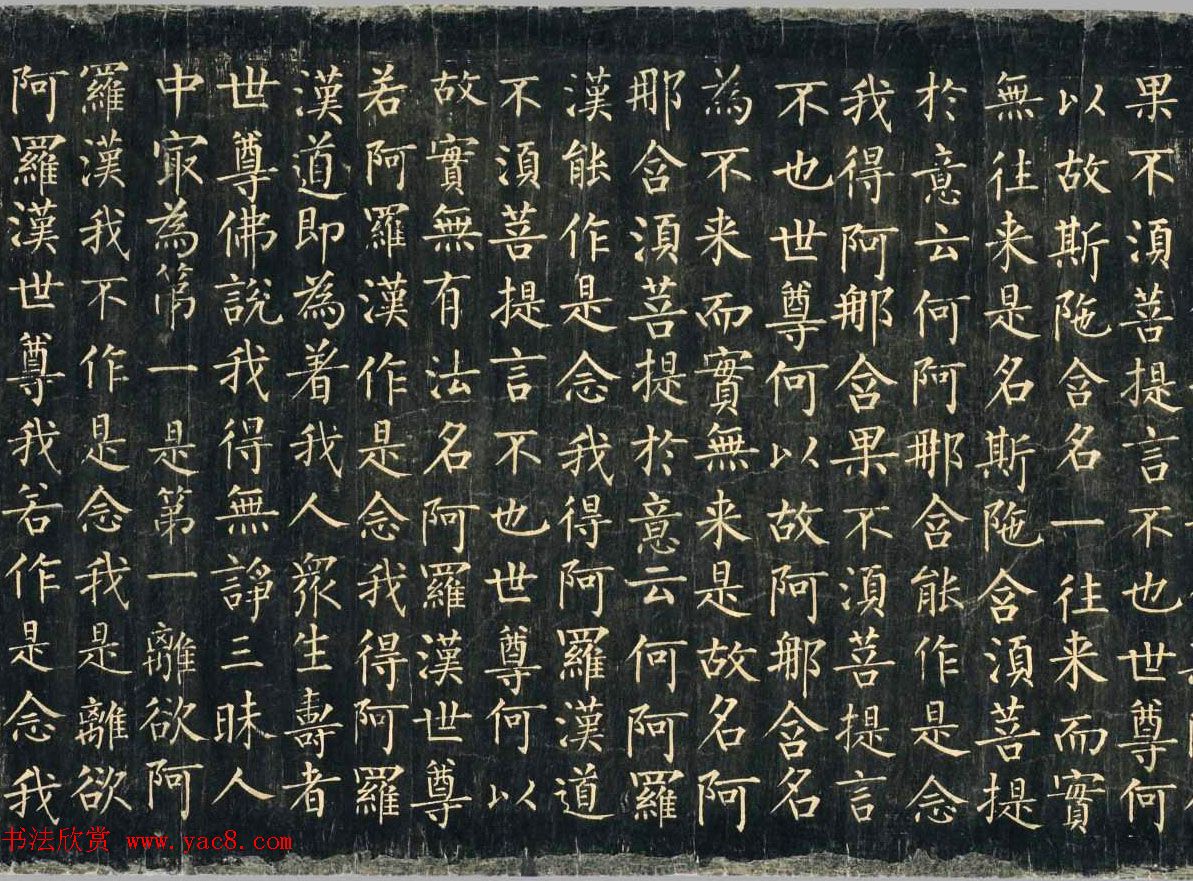 果不須菩提言不也世尊何
以故斯陁含名一往来而實
無往来是名斯陁含須菩提
於意云何阿那含能作是念
我得阿那含果不須菩提言
不也世尊何以故阿那含名
為不来而實無来是故名阿
那含須菩提於意云何阿羅
漢能作是念我得阿羅漢道
不須菩提言不也世尊何以
故實無有法名阿羅漢世尊
若阿羅漢作是念我得阿羅
漢道即為着我人眾生壽者
世尊佛說我得無諍三昧人
中冣為第一是第一離欲阿
羅漢我不作是念我是離欲
阿羅漢世尊我若作是念我
书法欣赏 www.yac8.com